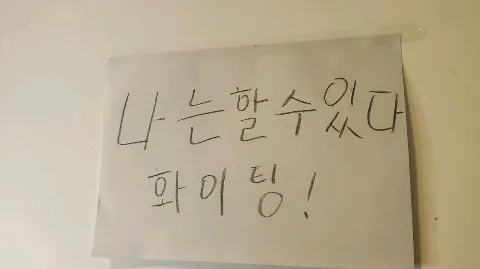 나는할수있다
화이팅!